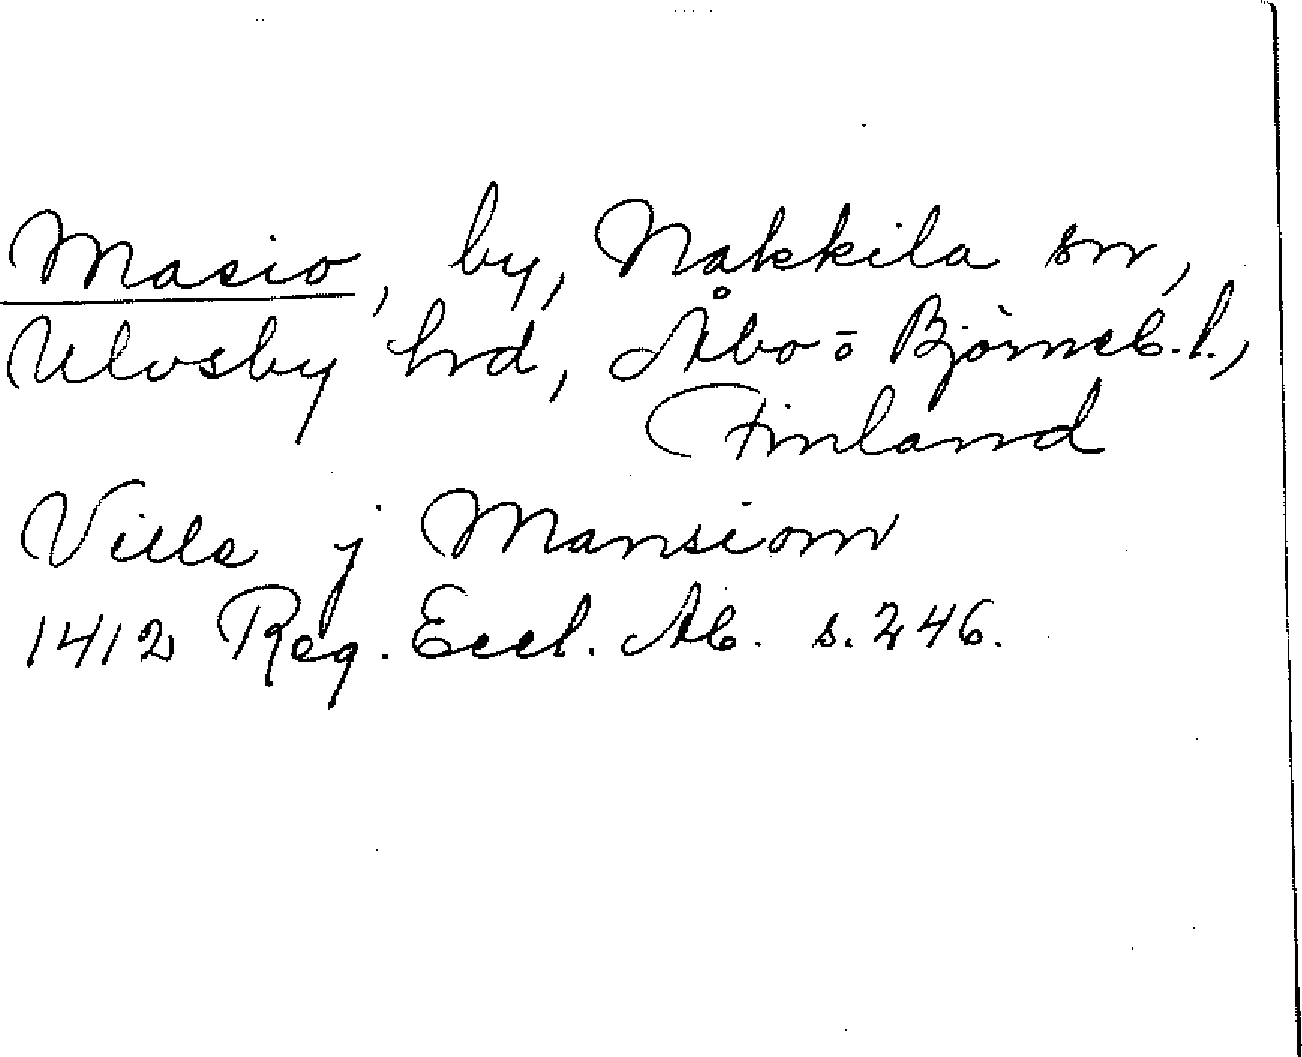 Masio, by, Nakkila sn,
Ulvsby hrd, Åbo- o Björneb. l.,
Finland
Villa j Mansiom
1412 Reg. Eccl. Ab. s. 246.